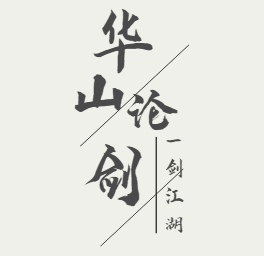 华山论剑
一剑江湖